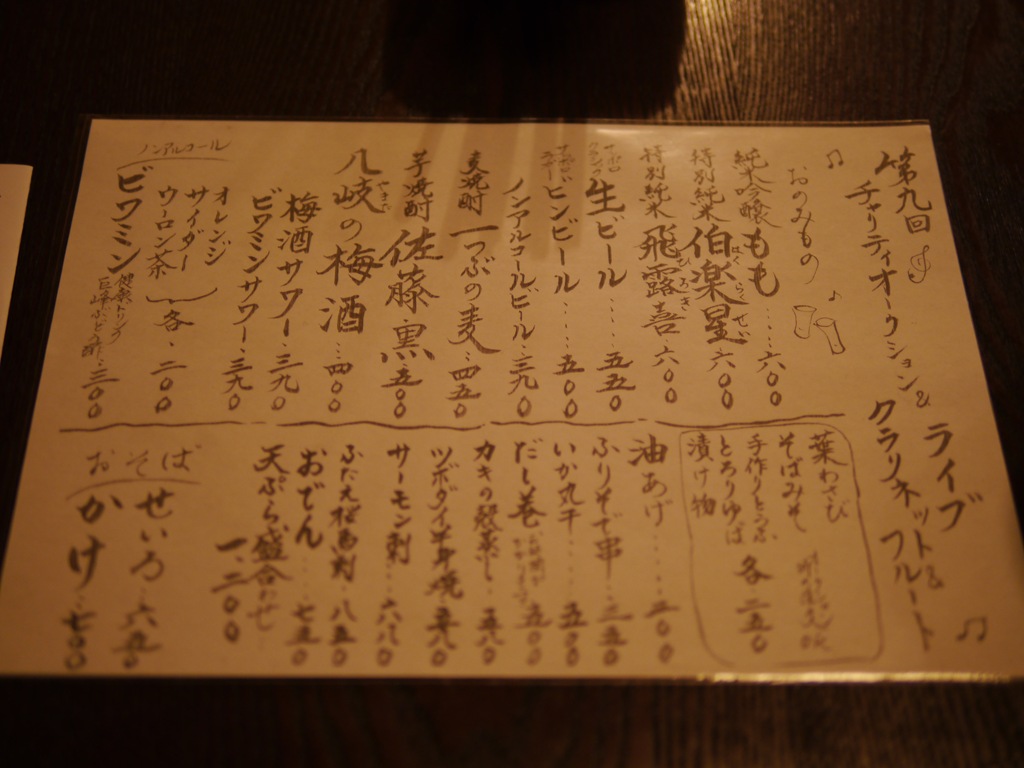 第九回
チャリティオークション&
ライブ
クラリネット&
フルート
おのみもの
純米吟醸 もも……六〇〇
特別純米 伯楽星 はくらくせい 六〇〇
特別純米 飛露喜 ひろき・六〇〇
生ビール……五五〇
ビンビール……五〇〇
ノンアルコールビール・三九〇
麦焼酎 一つぶの麦・四五〇
芋焼酎 佐藤・黒 五〇〇
八岐の梅酒…四〇〇
梅酒サワー・三九〇
ビワミンサワー・三九〇
ノンアルコール
オレンジ
サイダー
ウーロン茶
各・二〇〇
ビワミン 健康ドリンク 巨峰ぶどう酢・三〇〇
葉わさび
そばみそ
手作りとうふ
とろりゆば
漬け物
各・二五〇
油あげ
ふりそで串…三五〇
いか丸干……五〇〇
だし巻 五〇〇
カキの殻蒸し・五八〇
ツボダイ半身焼
サーモン刺…六八〇
八五〇
おでん…七五〇
天ぷら盛合わせ
一、二〇〇
おそば
せいろ・六五〇
かけ…七〇〇